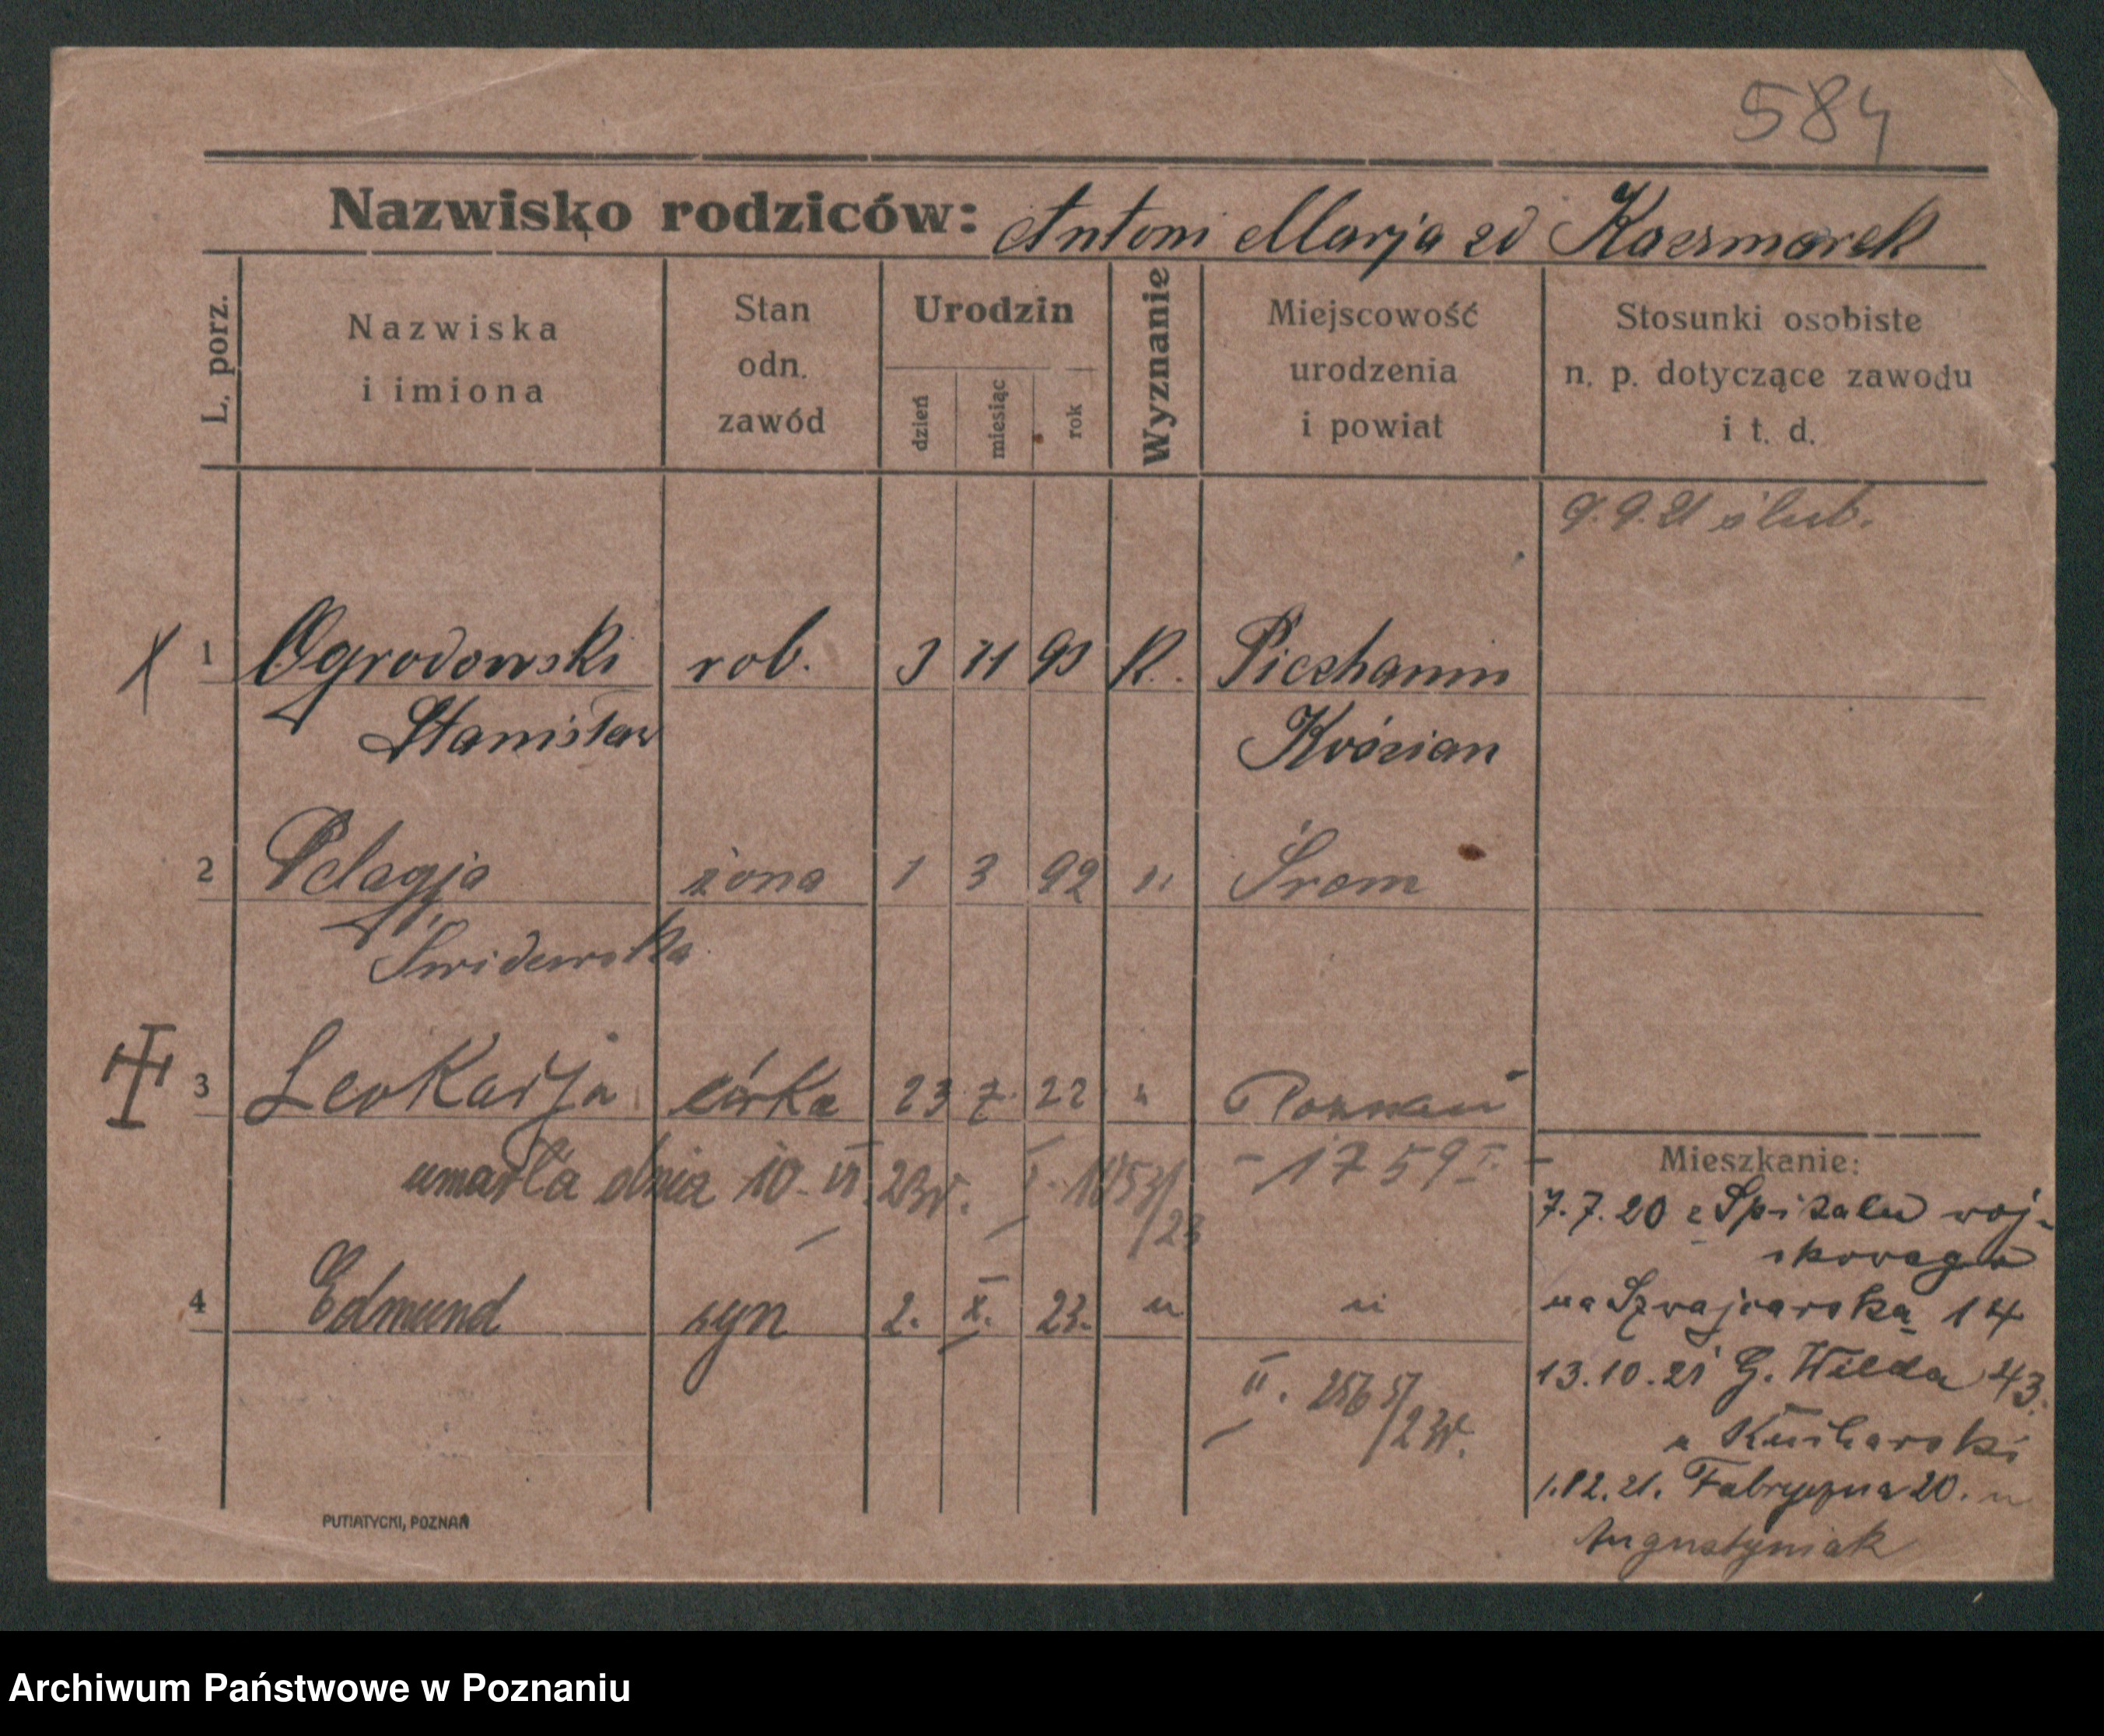 584
Nazwisko rodziców: Antoni Marja zd Kaczmarek
L. porz.
Nazwiska i imiona
Stan odn. zawód
Urodzin
dzień miesiąc rok
Wyznanie
Miejscowość urodzenia i powiat
Stosunki osobiste n. p. dotyczące zawodu i t. d.
9.9.21 ślub.
X 1 Ogrodowski rob. 3 11 93 K. Piechanin
Stanisław Kościan
2 Pelagja żona 1 3 92 " Śrem
Świderska
3 Leokadja córka 23 7. 22 " Poznań
umarła dnia 10. VI. 23r. I /23 - 1759 I. -
4 Edmund syn 2. X. 23. " "
II. /23r.
Mieszkanie:
7.7.20 z Szpitalu woj-
skowego
na Szwajcarska 14
13.10.21 G. Wilda 43.
u Kucharski
21. Fabryczna 20. u
Augustyniak
PUTIATYCKI, POZNAŃ
Archiwum Państwowe w Poznaniu